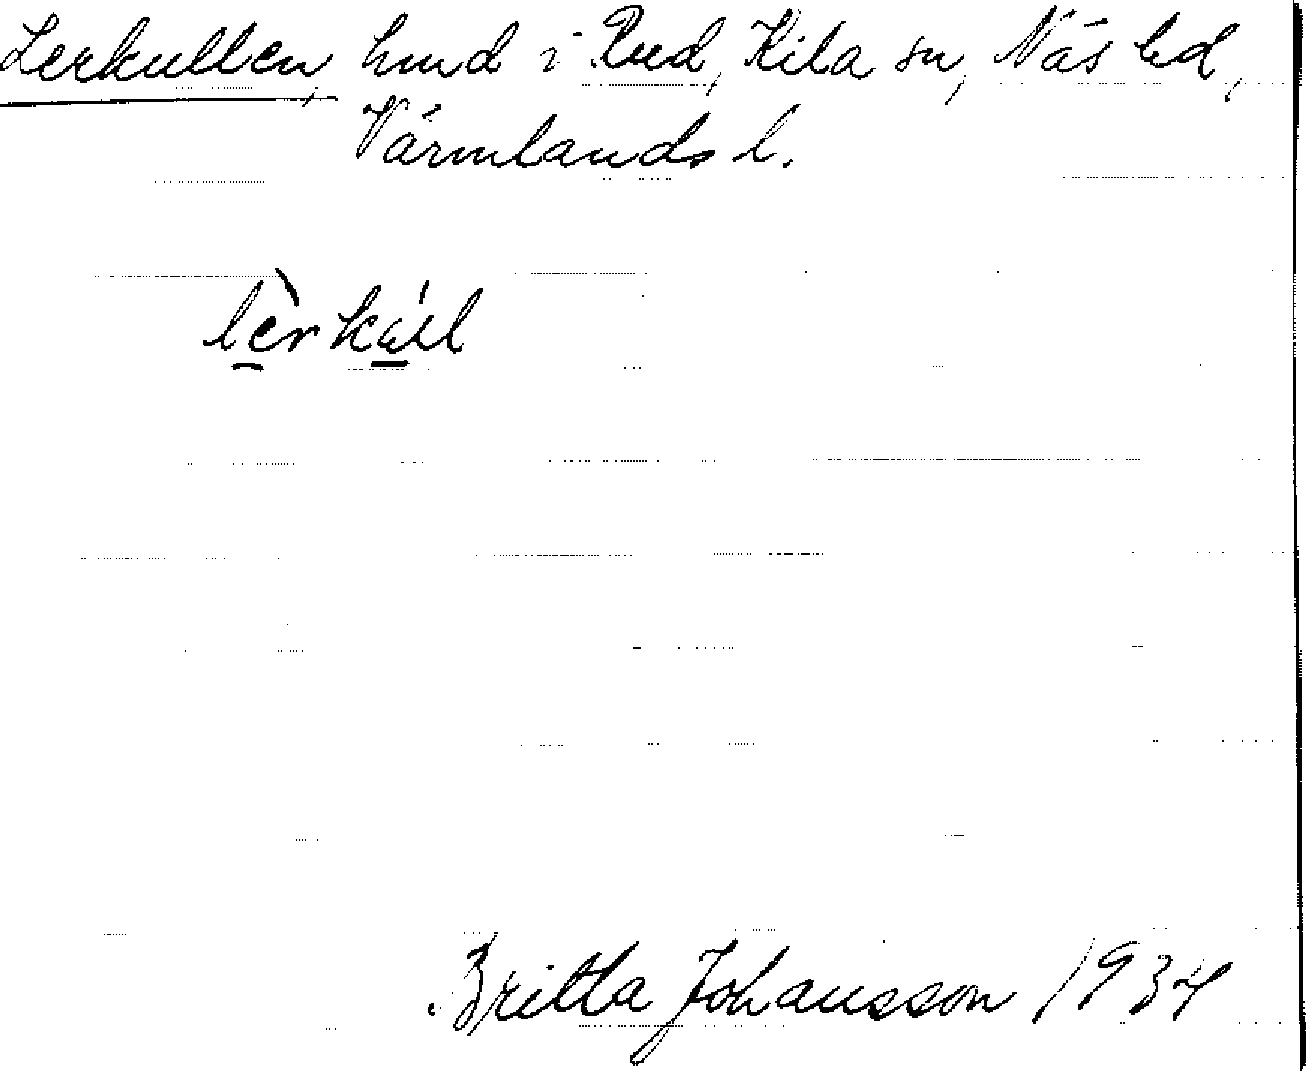 Lerkullen, hmd i Rud, Kila sn, Näs hd,
Värmlands l.
lèrkúll
Britta Johansson 1934